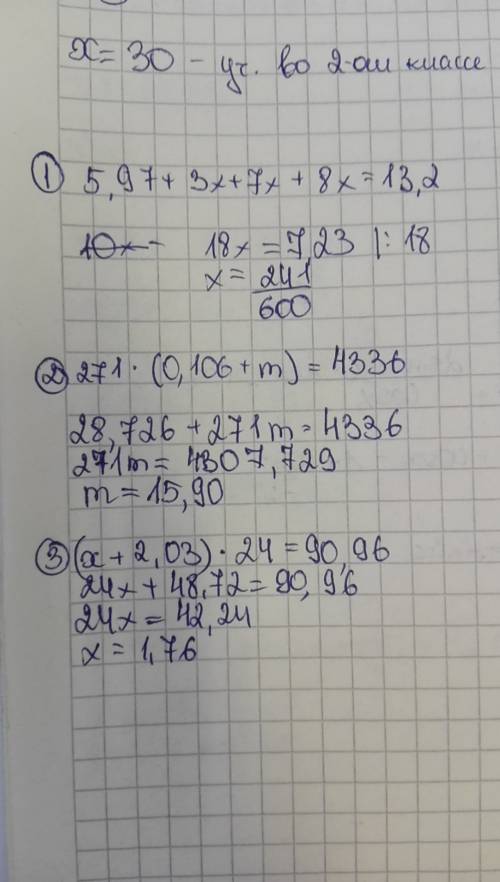 x = 30 - уч. во 2-ом классе
① 5,97 + 3x + 7x + 8x = 13,2
18x = 7,23 |: 18
x = 241
600
② 271 · (0,106 + m) = 4336
28,726 + 271m = 4336
271m = 4307,729
m = 15,90
③ (x + 2,03) · 24 = 90,96
24x + 48,72 = 90,96
24x = 42,24
x = 1,76